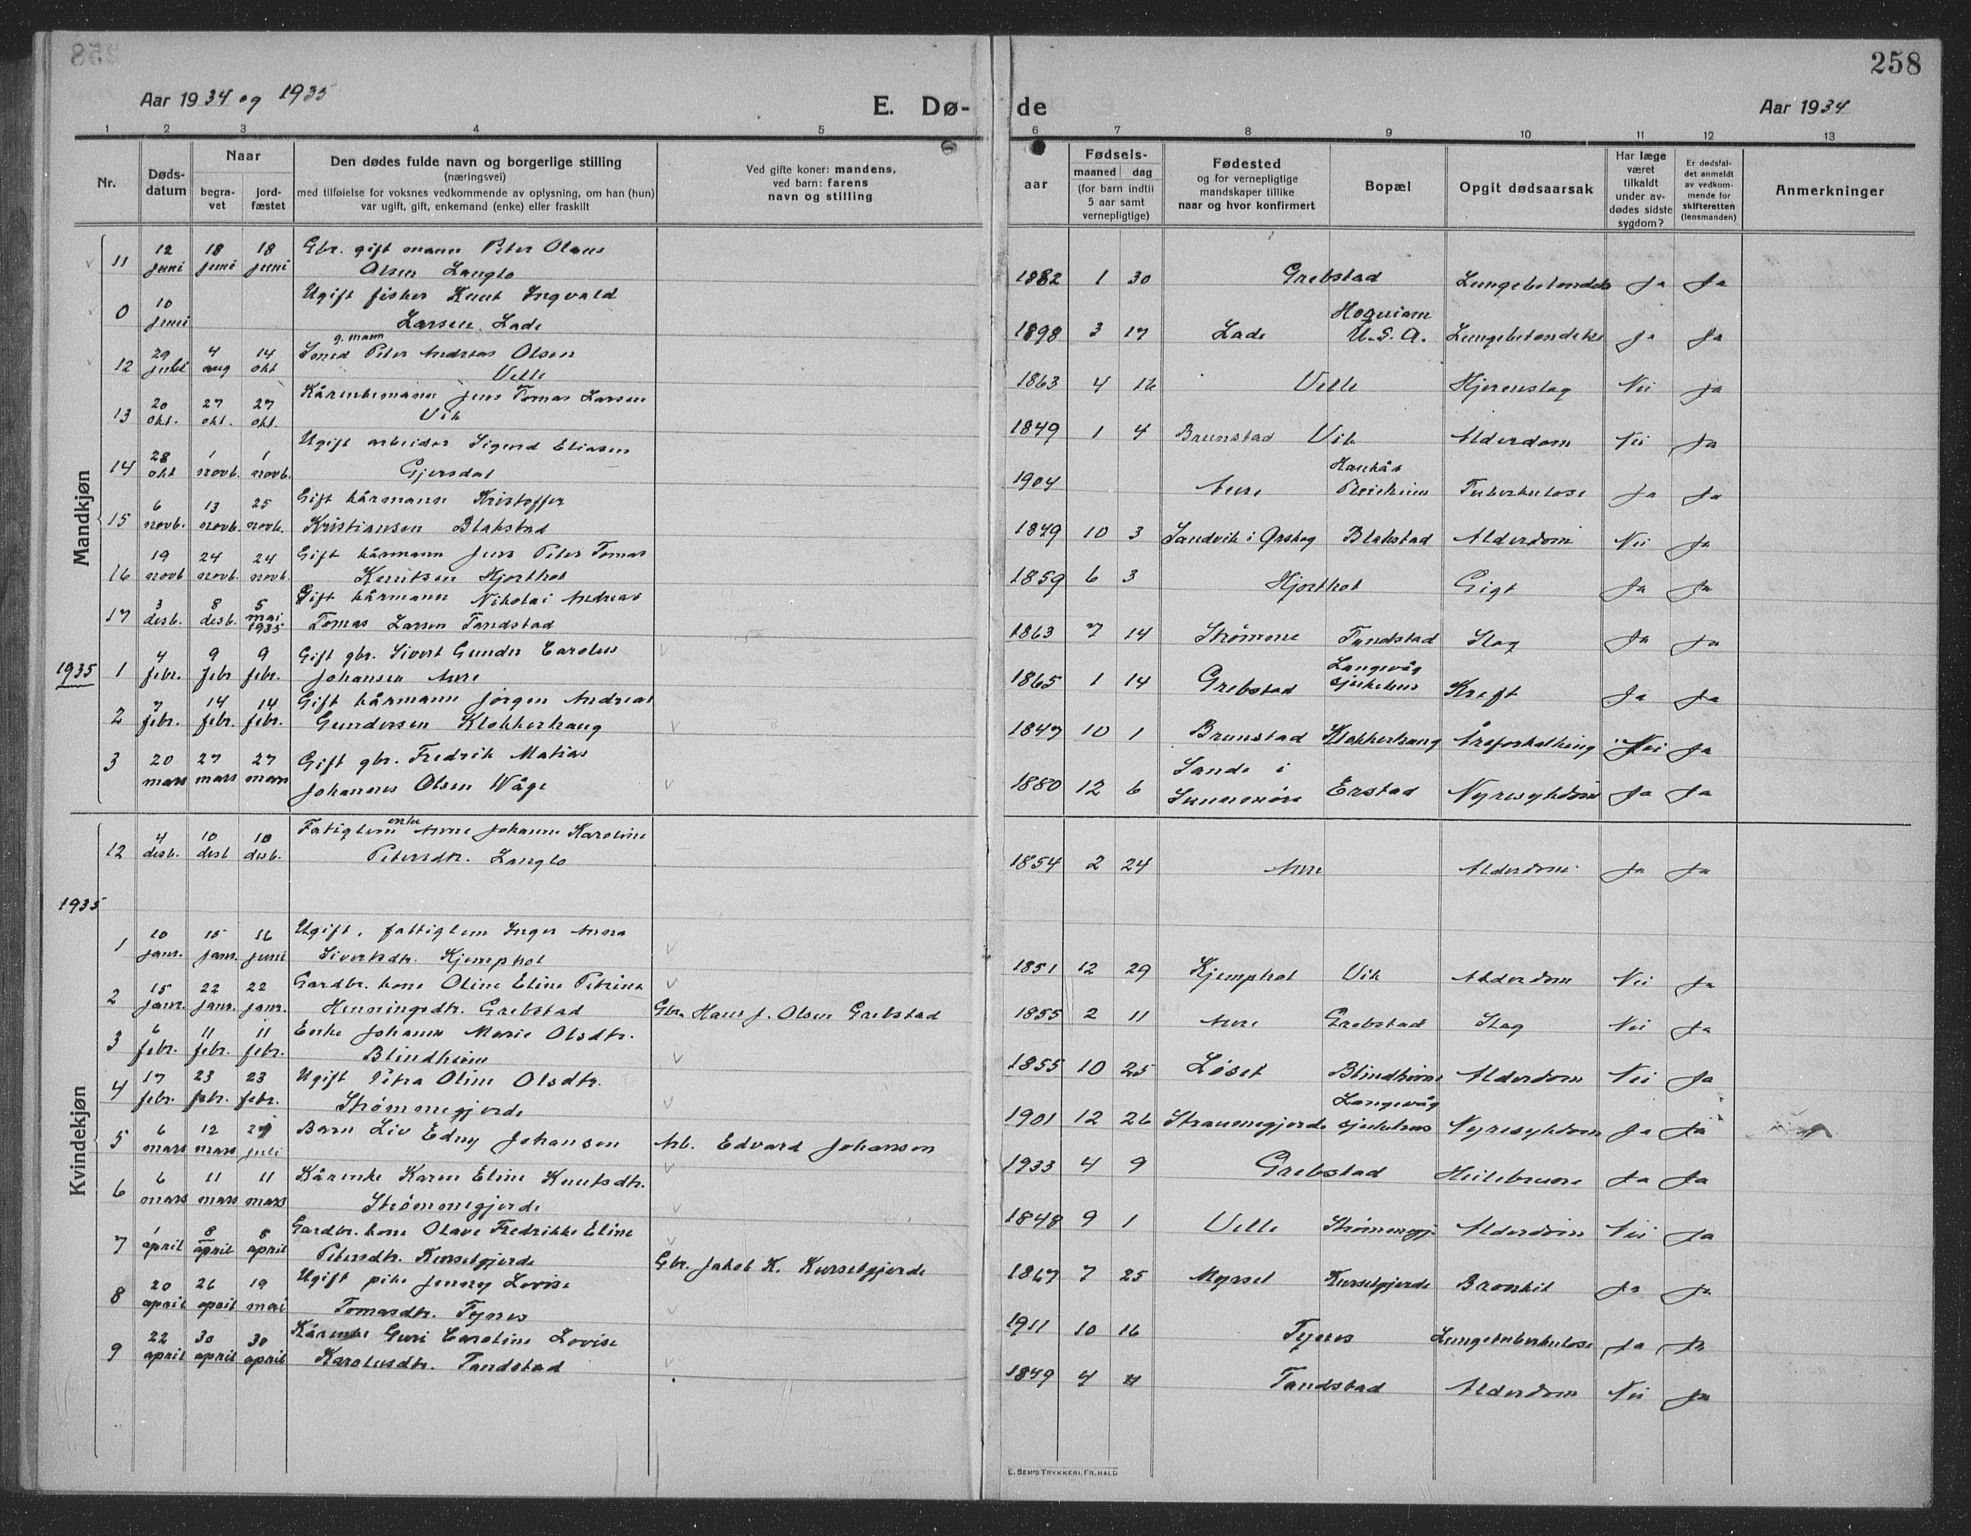 258
Aar 1934 og 1935
E. Dø-
de
Aar 1934
1 2 3 4 5 6 7 8 9 10 11 12 13
Nr.
Døds-
datum
Naar
begra-
vet
jord-
fæstet
Den dødes fulde navn og borgerlige stilling
(næringsvei)
med tilføielse for voksnes vedkommende av oplysning, om han (hun)
var ugift, gift, enkemand (enke) eller fraskilt
Ved gifte koner: mandens,
ved barn: farens
navn og stilling
aar
Fødsels-
maaned dag
(for barn indtil
5 aar samt
vernepligtige)
Fødested
og for vernepligtige
mandskaper tillike
naar og hvor konfirmert
Bopæl
Opgit dødsaarsak
Har læge
været
tilkaldt
under av-
dødes sidste
sygdom?
Er dødsfal-
det anmeldt
av vedkom-
mende for
skifteretten
(lensmanden)
Anmerkninger
Mandkjøn
11 12 juni 18 juni 18 juni Gbr. gift mann Peter Olaus
Olsen Langlo 1882 1 30 Grebstad Lungebetendelse Ja Ja
0 10 juni Ugift fisker Knut Ingvald
Larsen Lade 1898 3 17 Lade Hoquiam U.S.A. Lungebetendelse Ja Ja
12 29 4 aug 14 okt Smed g. mann Peter Andreas Olsen
Velle 1863 4 16 Velle Hjerneslag Nei Ja
13 20 okt. 27 okt. 27 okt. Kårenkemann Jens Tomas Larsen
Vik 1849 1 4 Brunstad Vik Alderdom Nei Ja
14 28 okt 1 novb. 1 novb. Ugift arbeider Sigurd Eliasen
Gjersdal 1904 Aure Tuberkulose Ja Ja
15 6 novb. 13 novb. 25 novb. Gift kårmann Kristoffer
Kristiansen Blakstad 1849 10 3 Sandvik i Ørskog Blakstad Alderdom Nei Ja
16 19 novb 24 novb. 24 novb. Gift kårmann Jens Peter Tomas
Knutsen Hjorthol 1859 6 3 Hjorthol Gigt Ja Ja
17 3 desb. 8 desb. 5 mai 1935 Gift kårmann Nikolai Andreas
Tomas Larsen Tandstad 1863 7 14 Strømme Tandstad Slag Ja Ja
1935
1 4 febr. 9 febr 9 febr. Gift gbr. Sivert Gunder Carolus
Johansen Aure 1865 1 14 Grebstad Langevåg sjukehus Kreft Ja Ja
2 7 febr. 14 febr. 14 febr. Gift kårmann Jørgen Andreas
Gundersen Klokkerhaug 1847 10 1 Brunstad Klokkerhaug Åreforkalkning Nei Ja
3 20 mars 27 mars 27 mars Gift gbr. Fredrik Matias
Johannes Olsen Wåge 1880 12 6 Sande i Sunnmøre Erstad Nyresykdom Ja Ja
Kvindekjøn
12 4 desb. 10 desb 10 desb. Fatiglem enke Anne Johanne Karoline
Petersdtr. Langlo 1854 2 24 Aure Alderdom Ja Ja
1935
1 10 janr. 15 janr. 16 juni Ugift. fattiglem Inger Anna
Sivertsdtr. Kjemphol 1851 12 29 Kjemphol Vik Alderdom Nei Ja
2 15 janr. 22 janr. 22 janr. Gardbr. kone Oline Eline Petrine
Henningsdtr. Grebstad Gbr. Hans J. Olsen Grebstad 1855 2 11 Aure Grebstad Slag Nei Ja
3 6 febr. 11 febr. 11 febr. Enke Johanne Marie Olsdtr.
Blindheim 1855 10 25 Løset Blindheim Alderdom Nei Ja
4 17 febr. 23 febr. 23 febr. Ugift Petra Oline Olsdtr.
Strømmegjerde 1901 12 26 Straumegjerde Langevåg sjukehus Nyresykdom Ja Ja
5 6 mars 12 mars juli Barn Liv Edny Johansen Arb. Edvard Johansen 1933 4 9 Grebstad Ja Ja
6 6 mars 11 mars 11 mars Kårenke Karen Eline Knutsdtr.
Strømmegjerde 1848 9 1 Velle Strømmegj. Alderdom Nei Ja
7 1 april 8 april 8 april Gardbr. kone Olave Fredrikke Eline
Petersdtr. Kurset­gjerde Gbr. Jakob K. Kursetgjerde 1867 7 25 Myrset Kursetgjerde Bronkit Ja Ja
8 20 april 26 april 19 mai Ugift pike Jenny Lovise
Tomasdtr. Tynes 1911 10 16 Tynes Lungetuberkulose Ja Ja
9 22 april 30 april 30 april Kårenke Guri Caroline Lovise
Karolusdtr. Tandstad 1849 4 4 Tandstad Alderdom Nei Ja
E. SEMS TRYKKERI, FR.HALD